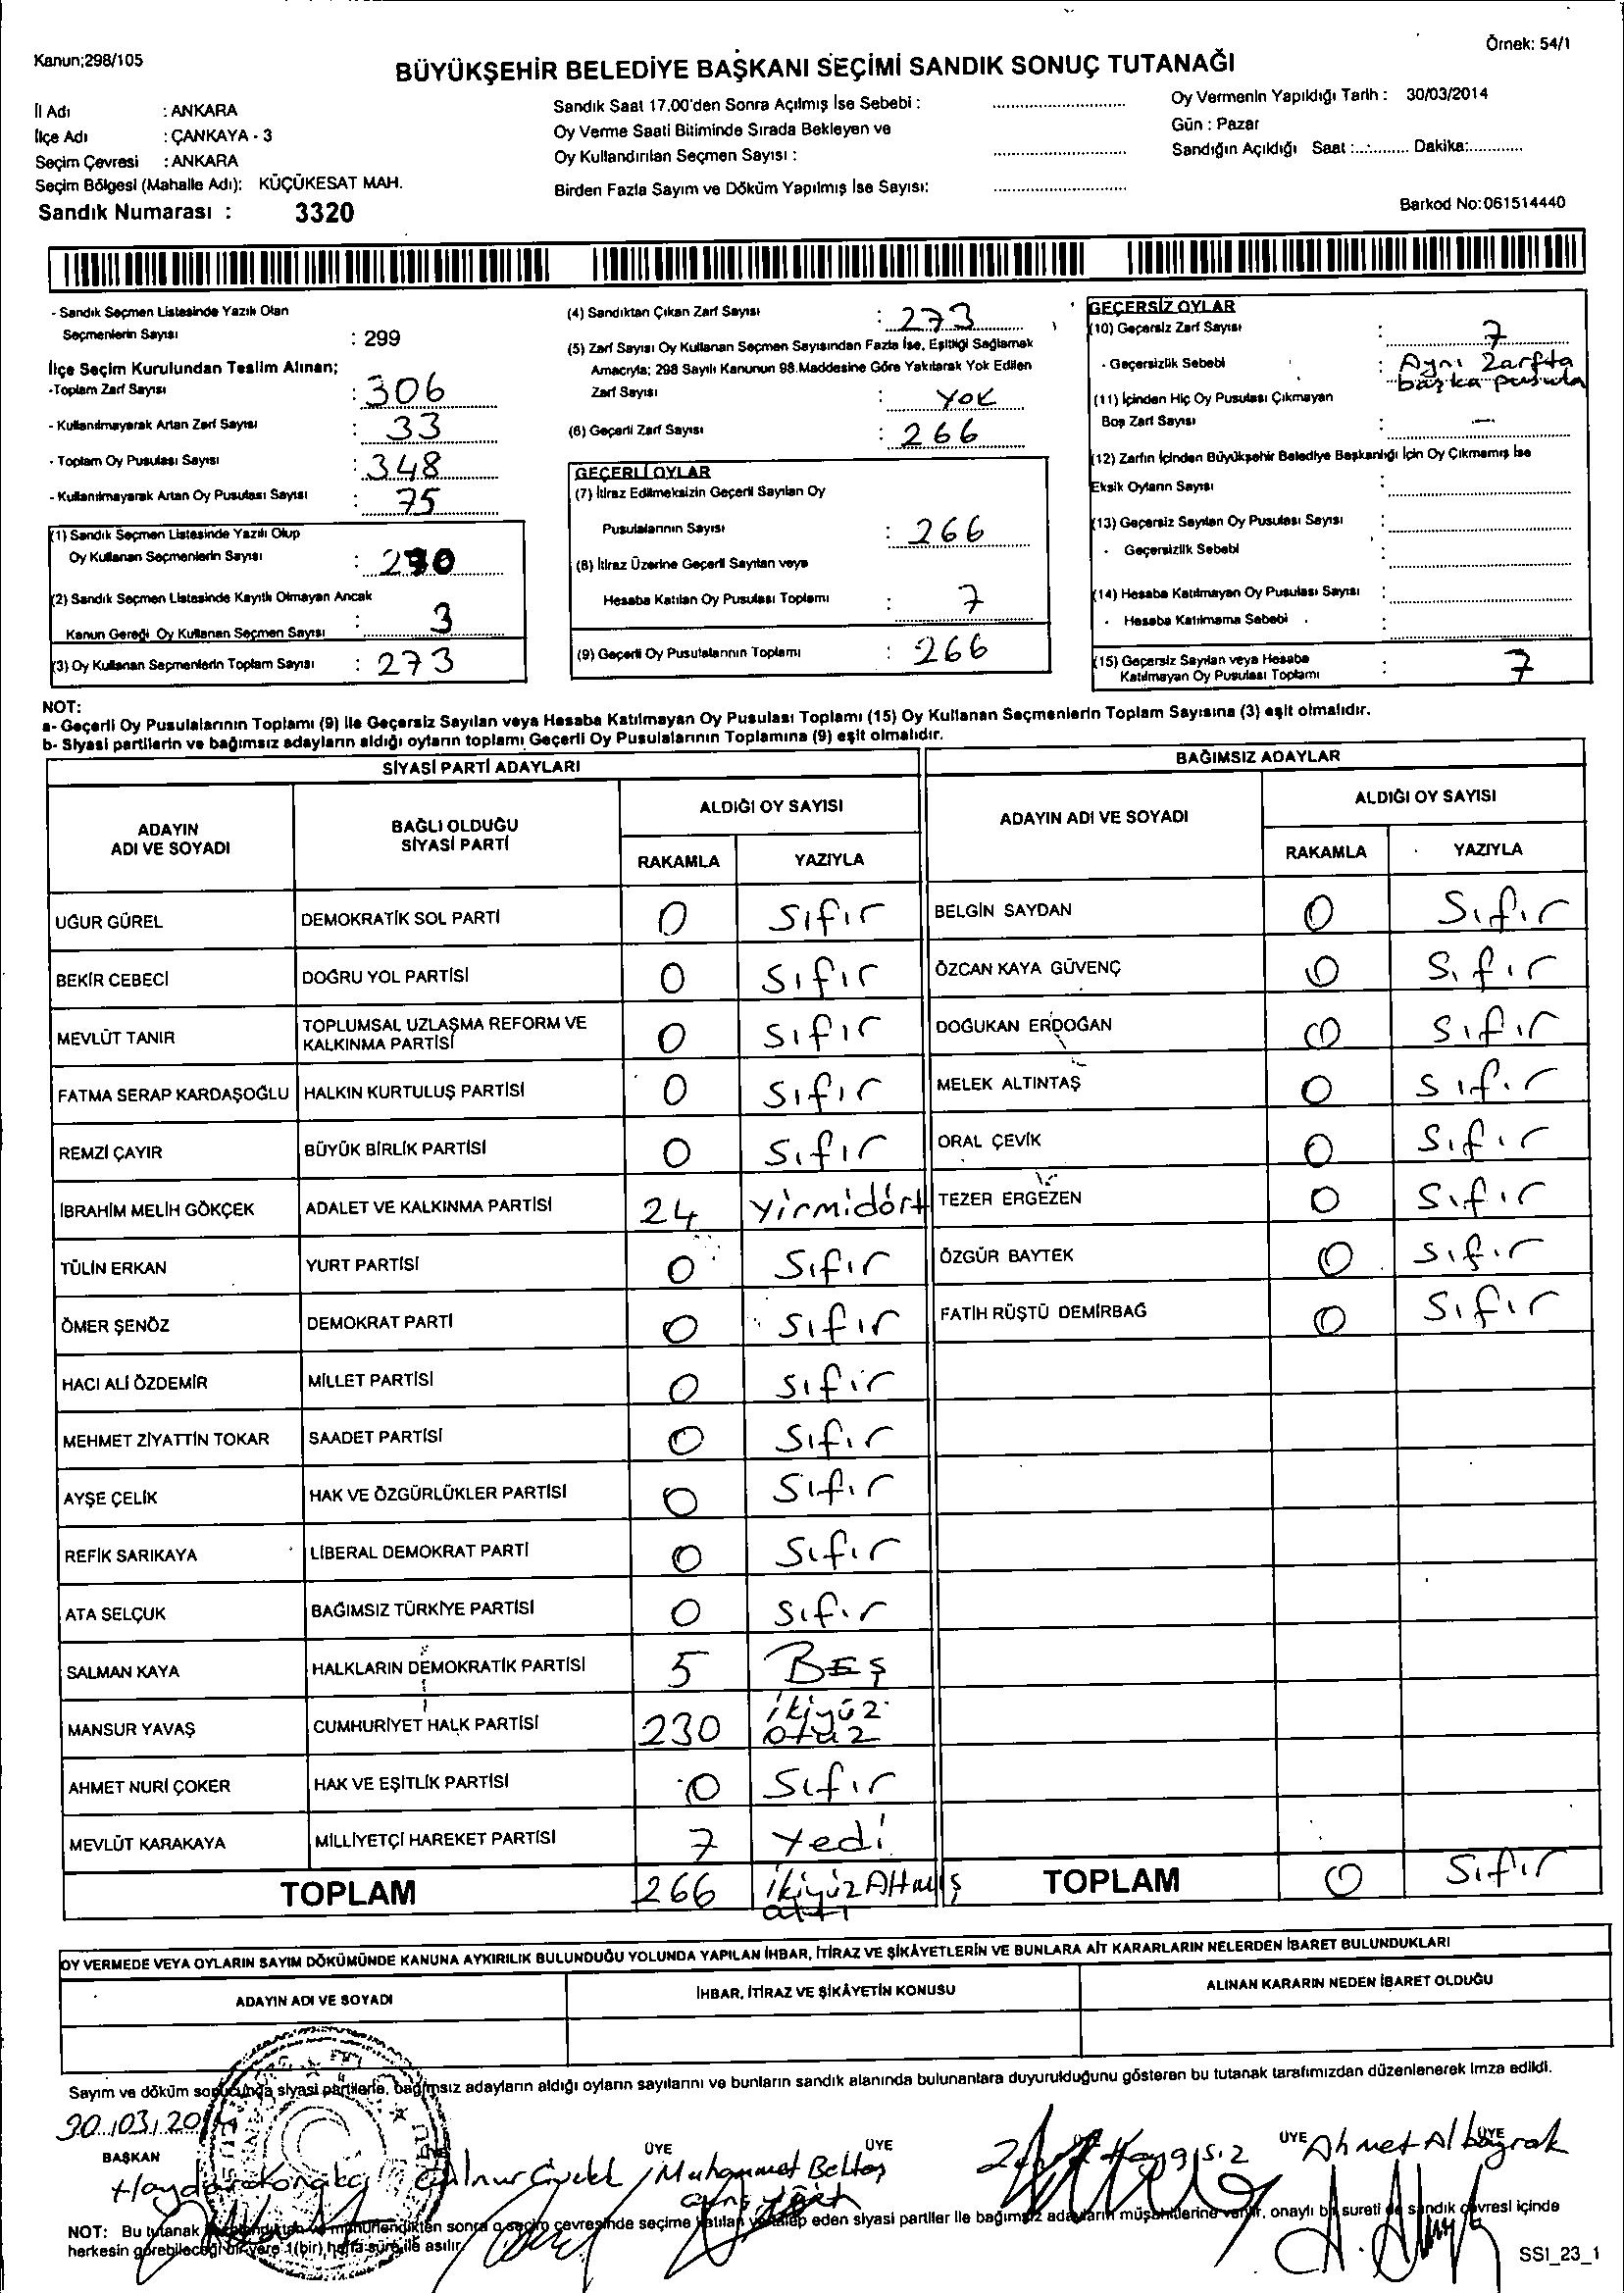 Kanun;298/105
Örnek: 54/1
BÜYÜKŞEHİR BELEDİYE BAŞKANI SEÇİMİ SANDIK SONUÇ TUTANAĞI
İl Adı : ANKARA
İlçe Adı : ÇANKAYA - 3
Seçim Çevresi : ANKARA
Seçim Bölgesi (Mahalle Adı): KÜÇÜKESAT MAH.
Sandık Numarası : 3320
Sandık Saat 17.00'den Sonra Açılmış İse Sebebi :
Oy Verme Saati Bitiminde Sırada Bekleyen ve
Oy Kullandırılan Seçmen Sayısı :
Birden Fazla Sayım ve Döküm Yapılmış İse Sayısı:
Oy Vermenin Yapıldığı Tarih : 30/03/2014
Gün : Pazar
Sandığın Açıldığı Saat :............ Dakika:............
Barkod No:061514440
- Sandık Seçmen Listesinde Yazılı Olan
Seçmenlerin Sayısı : 299
İlçe Seçim Kurulundan Teslim Alınan;
-Toplam Zarf Sayısı : 306
- Kullanılmayarak Artan Zarf Sayısı : 33
- Toplam Oy Pusulası Sayısı : 348
- Kullanılmayarak Artan Oy Pusulası Sayısı : 75
(1) Sandık Seçmen Listesinde Yazılı Olup
Oy Kullanan Seçmenlerin Sayısı : 270
(2) Sandık Seçmen Listesinde Kayıtlı Olmayan Ancak
Kanun Gereği Oy Kullanan Seçmen Sayısı : 3
(3) Oy Kullanan Seçmenlerin Toplam Sayısı : 273
(4) Sandıktan Çıkan Zarf Sayısı : 273
(5) Zarf Sayısı Oy Kullanan Seçmen Sayısından Fazla İse, Eşitliği Sağlamak
Amacıyla; 298 Sayılı Kanunun 98.Maddesine Göre Yakılarak Yok Edilen
Zarf Sayısı : YOK
(6) Geçerli Zarf Sayısı : 266
GEÇERLİ OYLAR
(7) İtiraz Edilmeksizin Geçerli Sayılan Oy
Pusulalarının Sayısı : 266
(8) İtiraz Üzerine Geçerli Sayılan veya
Hesaba Katılan Oy Pusulası Toplamı : 7
(9) Geçerli Oy Pusulalarının Toplamı : 266
GEÇERSİZ OYLAR
(10) Geçersiz Zarf Sayısı : 7
- Geçersizlik Sebebi : Aynı Zarfta
başka pusula
(11) İçinden Hiç Oy Pusulası Çıkmayan
Boş Zarf Sayısı : —
(12) Zarfın İçinden Büyükşehir Belediye Başkanlığı İçin Oy Çıkmamış İse
Eksik Oyların Sayısı :
(13) Geçersiz Sayılan Oy Pusulası Sayısı :
- Geçersizlik Sebebi :
(14) Hesaba Katılmayan Oy Pusulası Sayısı :
- Hesaba Katılmama Sebebi :
(15) Geçersiz Sayılan veya Hesaba
Katılmayan Oy Pusulası Toplamı : 7
NOT:
a- Geçerli Oy Pusulalarının Toplamı (9) ile Geçersiz Sayılan veya Hesaba Katılmayan Oy Pusulası Toplamı (15) Oy Kullanan Seçmenlerin Toplam Sayısına (3) eşit olmalıdır.
b- Siyasi partilerin ve bağımsız adayların aldığı oyların toplamı Geçerli Oy Pusulalarının Toplamına (9) eşit olmalıdır.
SİYASİ PARTİ ADAYLARI
BAĞIMSIZ ADAYLAR
ADAYIN
ADI VE SOYADI
BAĞLI OLDUĞU
SİYASİ PARTİ
ALDIĞI OY SAYISI
RAKAMLA YAZIYLA
ADAYIN ADI VE SOYADI
ALDIĞI OY SAYISI
RAKAMLA YAZIYLA
UĞUR GÜREL DEMOKRATİK SOL PARTİ 0 Sıfır BELGİN SAYDAN 0 Sıfır
BEKİR CEBECİ DOĞRU YOL PARTİSİ 0 Sıfır ÖZCAN KAYA GÜVENÇ 0 Sıfır
MEVLÜT TANIR TOPLUMSAL UZLAŞMA REFORM VE
KALKINMA PARTİSİ 0 Sıfır DOĞUKAN ERDOĞAN 0 Sıfır
FATMA SERAP KARDAŞOĞLU HALKIN KURTULUŞ PARTİSİ 0 Sıfır MELEK ALTINTAŞ 0 Sıfır
REMZİ ÇAYIR BÜYÜK BİRLİK PARTİSİ 0 Sıfır ORAL ÇEVİK 0 Sıfır
İBRAHİM MELİH GÖKÇEK ADALET VE KALKINMA PARTİSİ 24 Yirmidört TEZER ERGEZEN 0 Sıfır
TÜLİN ERKAN YURT PARTİSİ 0 Sıfır ÖZGÜR BAYTEK 0 Sıfır
ÖMER ŞENÖZ DEMOKRAT PARTİ 0 Sıfır FATİH RÜŞTÜ DEMİRBAĞ 0 Sıfır
HACI ALİ ÖZDEMİR MİLLET PARTİSİ 0 Sıfır
MEHMET ZİYATTİN TOKAR SAADET PARTİSİ 0 Sıfır
AYŞE ÇELİK HAK VE ÖZGÜRLÜKLER PARTİSİ 0 Sıfır
REFİK SARIKAYA LİBERAL DEMOKRAT PARTİ 0 Sıfır
ATA SELÇUK BAĞIMSIZ TÜRKİYE PARTİSİ 0 Sıfır
SALMAN KAYA HALKLARIN DEMOKRATİK PARTİSİ 5 BEŞ
MANSUR YAVAŞ CUMHURİYET HALK PARTİSİ 230 ikiyüz
otuz
AHMET NURİ ÇOKER HAK VE EŞİTLİK PARTİSİ 0 Sıfır
MEVLÜT KARAKAYA MİLLİYETÇİ HAREKET PARTİSİ 7 Yedi
TOPLAM 266 ikiyüzAltmış
altı
TOPLAM 0 Sıfır
OY VERMEDE VEYA OYLARIN SAYIM DÖKÜMÜNDE KANUNA AYKIRILIK BULUNDUĞU YOLUNDA YAPILAN İHBAR, İTİRAZ VE ŞİKÂYETLERİN VE BUNLARA AİT KARARLARIN NELERDEN İBARET BULUNDUKLARI
ADAYIN ADI VE SOYADI İHBAR, İTİRAZ VE ŞİKÂYETİN KONUSU ALINAN KARARIN NEDEN İBARET OLDUĞU
Sayım ve döküm sonucunda siyasi partilerle, bağımsız adayların aldığı oyların sayılarını ve bunların sandık alanında bulunanlara duyurulduğunu gösteren bu tutanak tarafımızdan düzenlenerek imza edildi.
30.03.2014
BAŞKAN ÜYE ÜYE ÜYE ÜYE
Muhammet Ahmet Albayrak
NOT: Bu tutanak mühürlendikten sonra o seçim çevresinde seçime katılan ve talep eden siyasi partiler ile bağımsız adayların müşahitlerine verilir, onaylı bir sureti de sandık çevresi içinde
herkesin görebileceği bir yere 1(bir) hafta süre ile asılır.
SSI_23_1